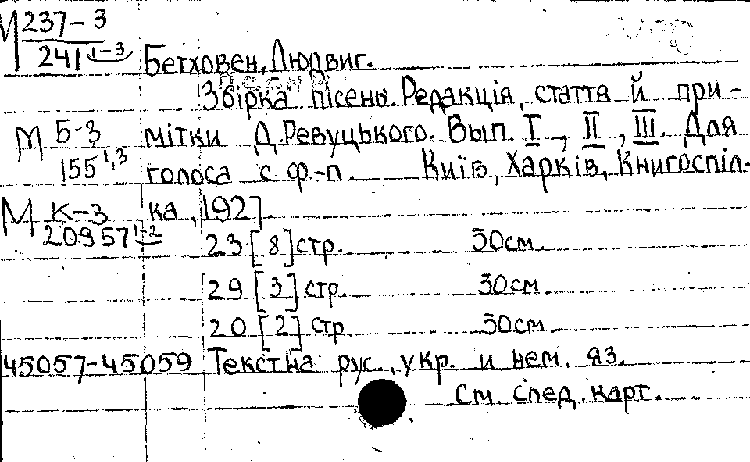 М 237-3
241 1-3 Бетховен, Людвиг.
Збірка пісень. Редакція, стаття й при-
М Б-3 мітки Д. Ревуцького. Вып. I, II, III. Для
155 1,3 голоса с ф.-п. Київ, Харків, Книгоспіл-
М К-3 ка, 1927.
20957 1-2
23 [8] стр. 30см.
29 [3] стр. 30см.
20 [2] стр. 30см.
45057-45059 Текст на рус., укр. и нем. яз.
См. след. карт.